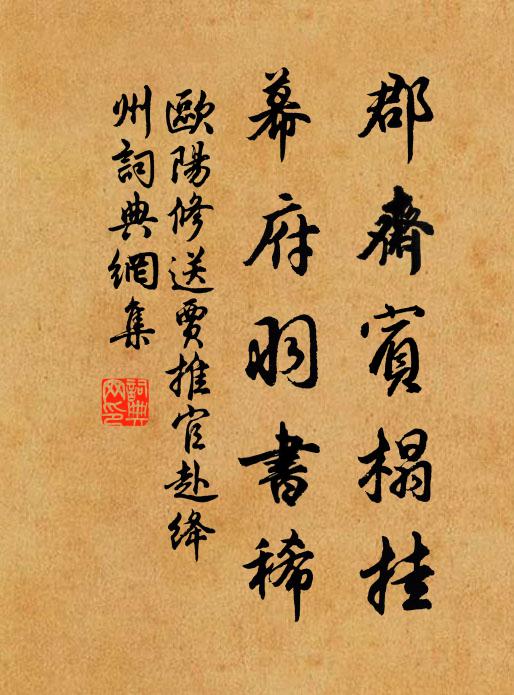 郡齋賓榻挂
幕府羽書稀
歐陽修送賈推官赴絳
州詞典網集
詞典网印